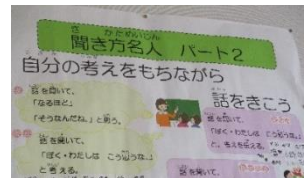 聞き方名人 パート2
自分の考えをもちながら
話をきこう
話を聞いて、
「なるほど」
「そうなんだね。」と思う。
話を聞いて、
「ぼく・わたしは こう思うな。」
と 考える。
話を聞いて、
「ぼく・わたしは
と、考えを
話を聞いて、